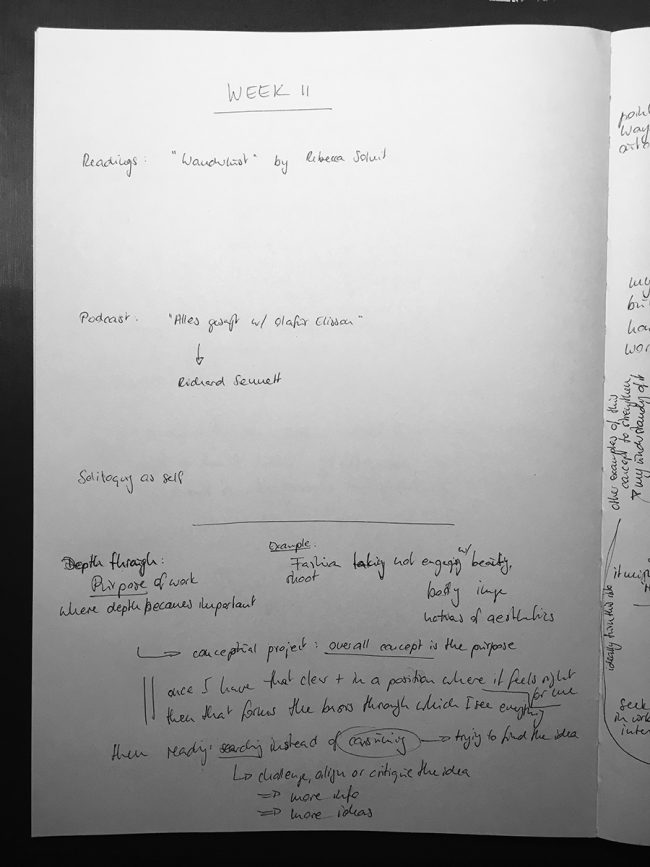 WEEK 11
Readings: "Wanderlust" by Rebecca Solnit
Podcast: "Alles gesagt w/ Olafur Elisson"
Richard Sennett
Soliloquy as self
Depth through:
Purpose of work
where depth becomes important
Example:
Fashion taking not engaging w/ beauty,
shoot
body image
notions of aesthetics
conceptual project: overall concept is the purpose
once I have that clear + in a position where it feels right
for me
then that forms the through which I see everything
then reading: searching instead of consuming → trying to find the idea
challenge, align or critique the idea
⇒ more info
⇒ more ideas
other examples of this
concept to strengthen
my understanding of it
ideally from this
seek
in work